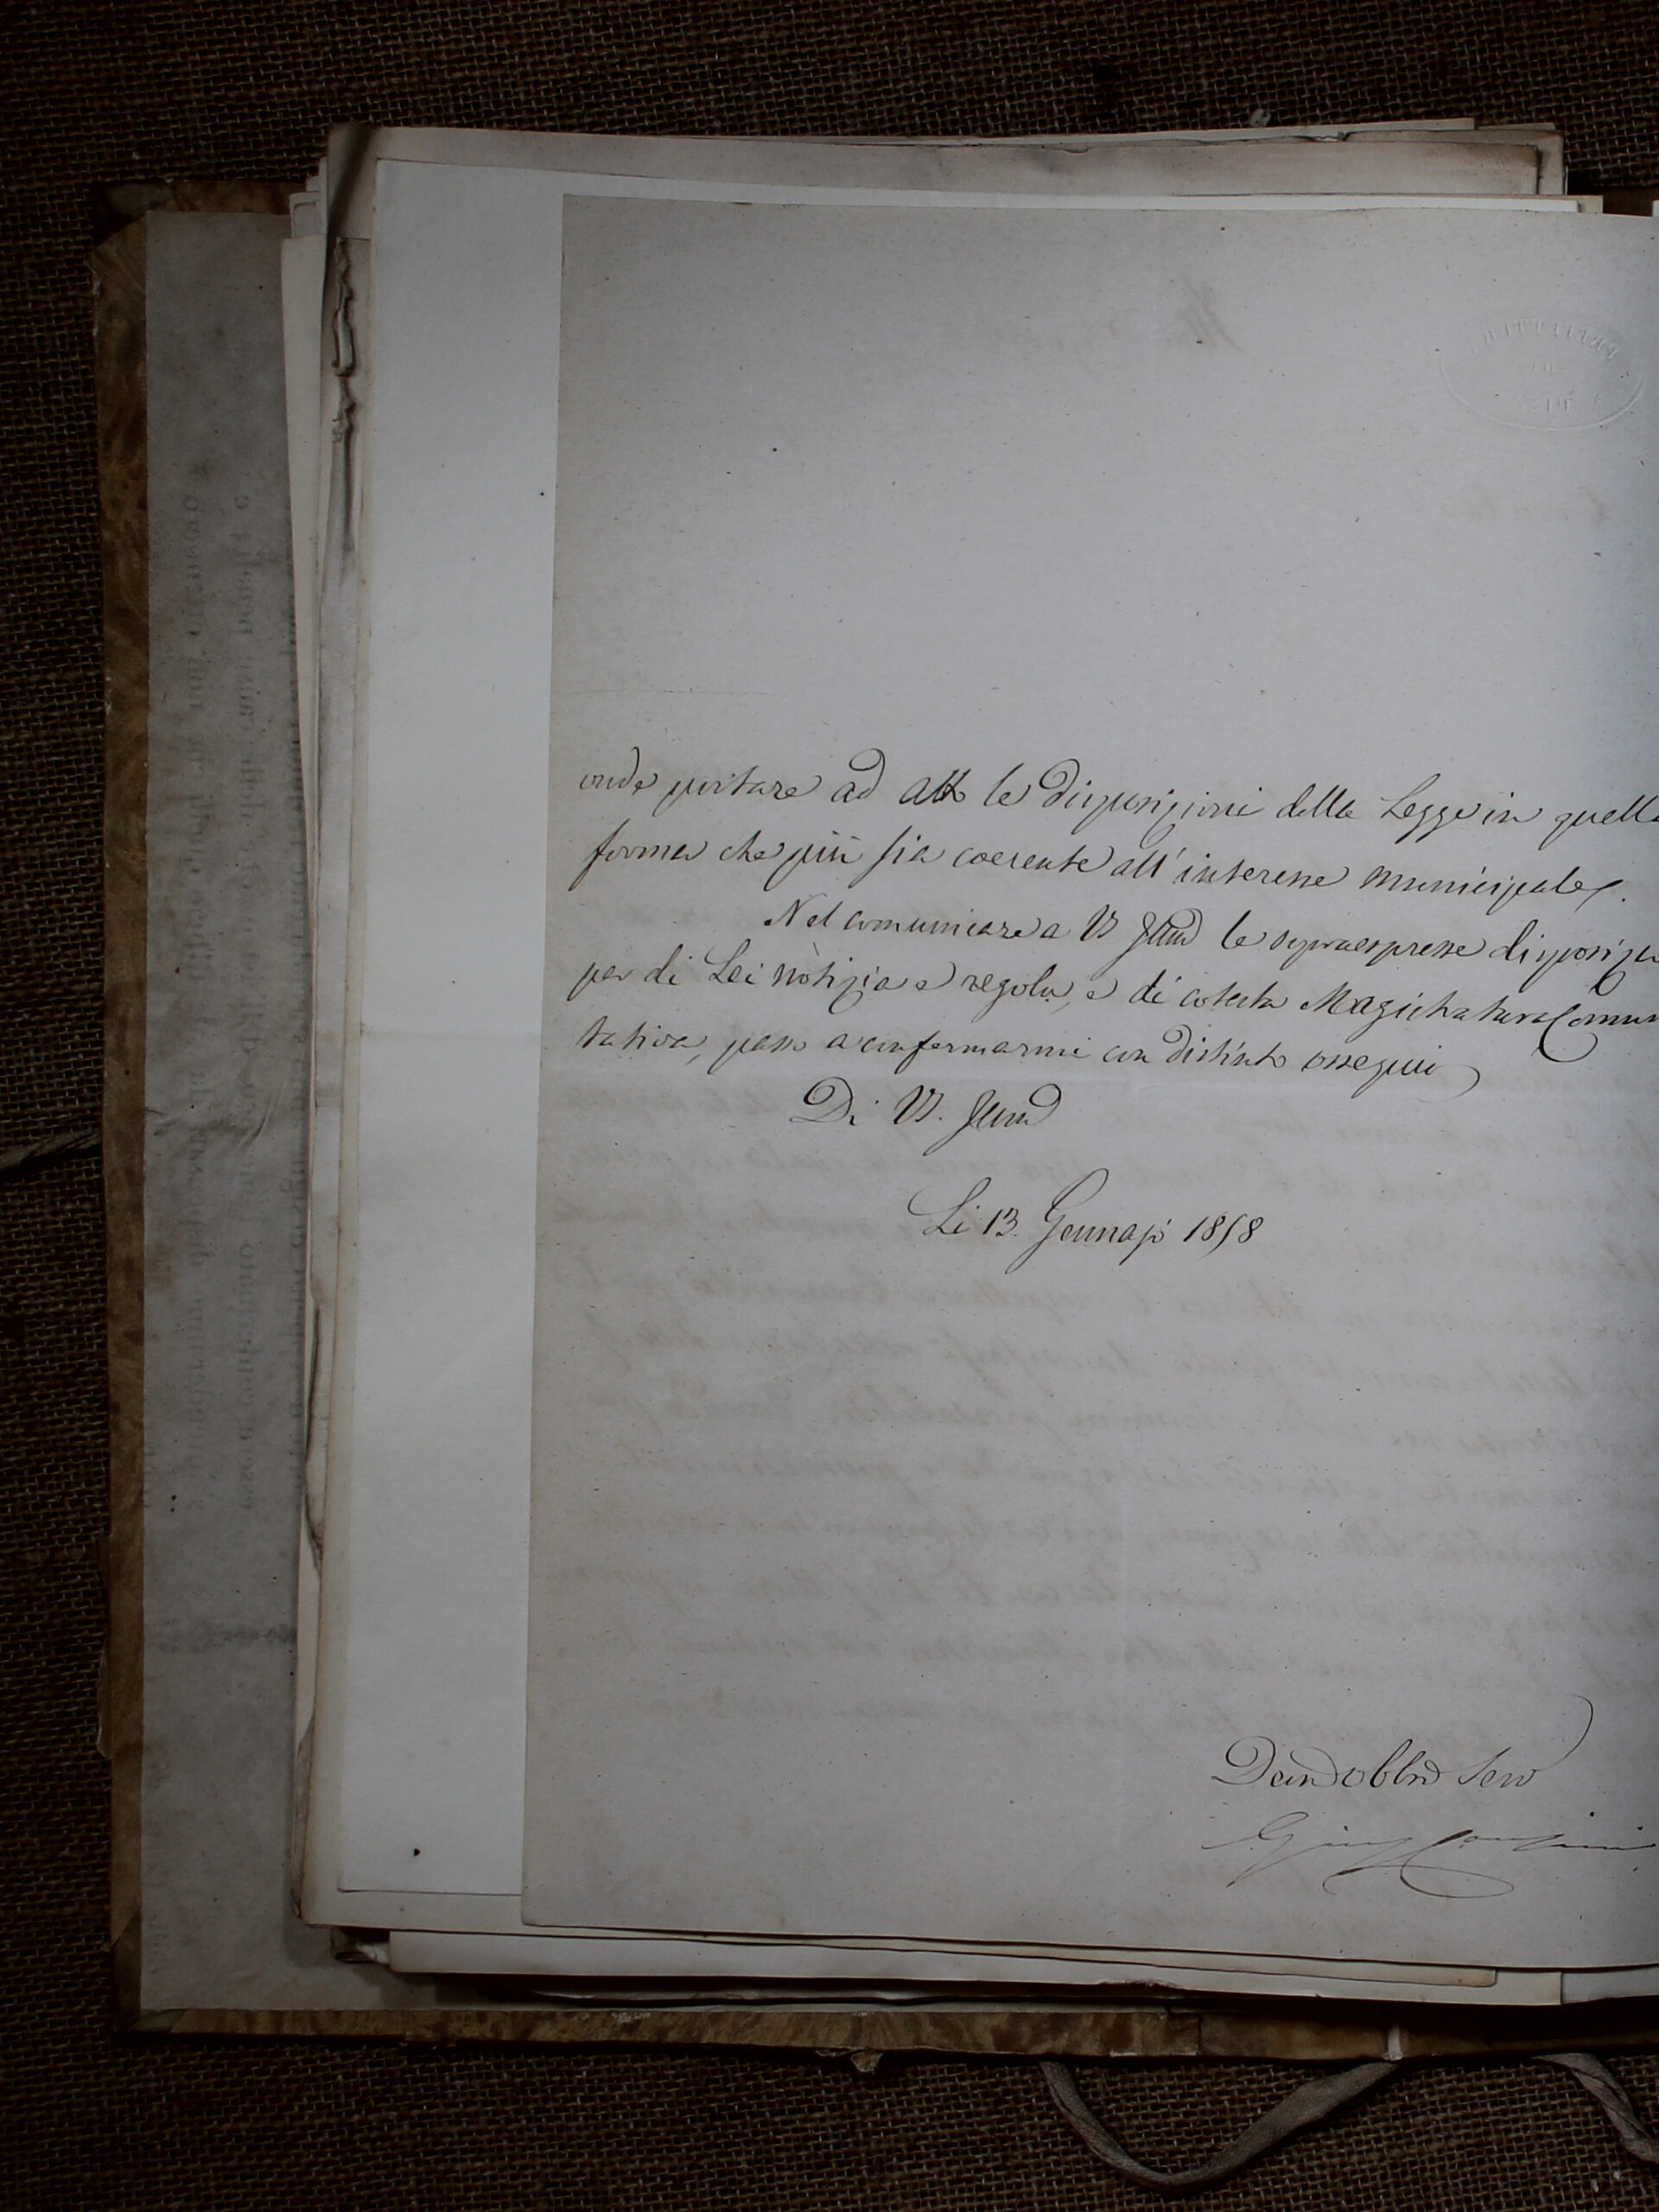 onde portare ad atto le disposizioni della Legge in quella
forma che più sia coerente all'interesse municipale.
Nel comunicare a VS Illma le sopraespresse disposizio
per di Lei notizia e regola, e di cotesta Magistratura Comun
tativa, passo a confermarmi con distinto ossequio
Di VS. Illma
Li 13. Gennajo 1858
Devmo obblmo Serv